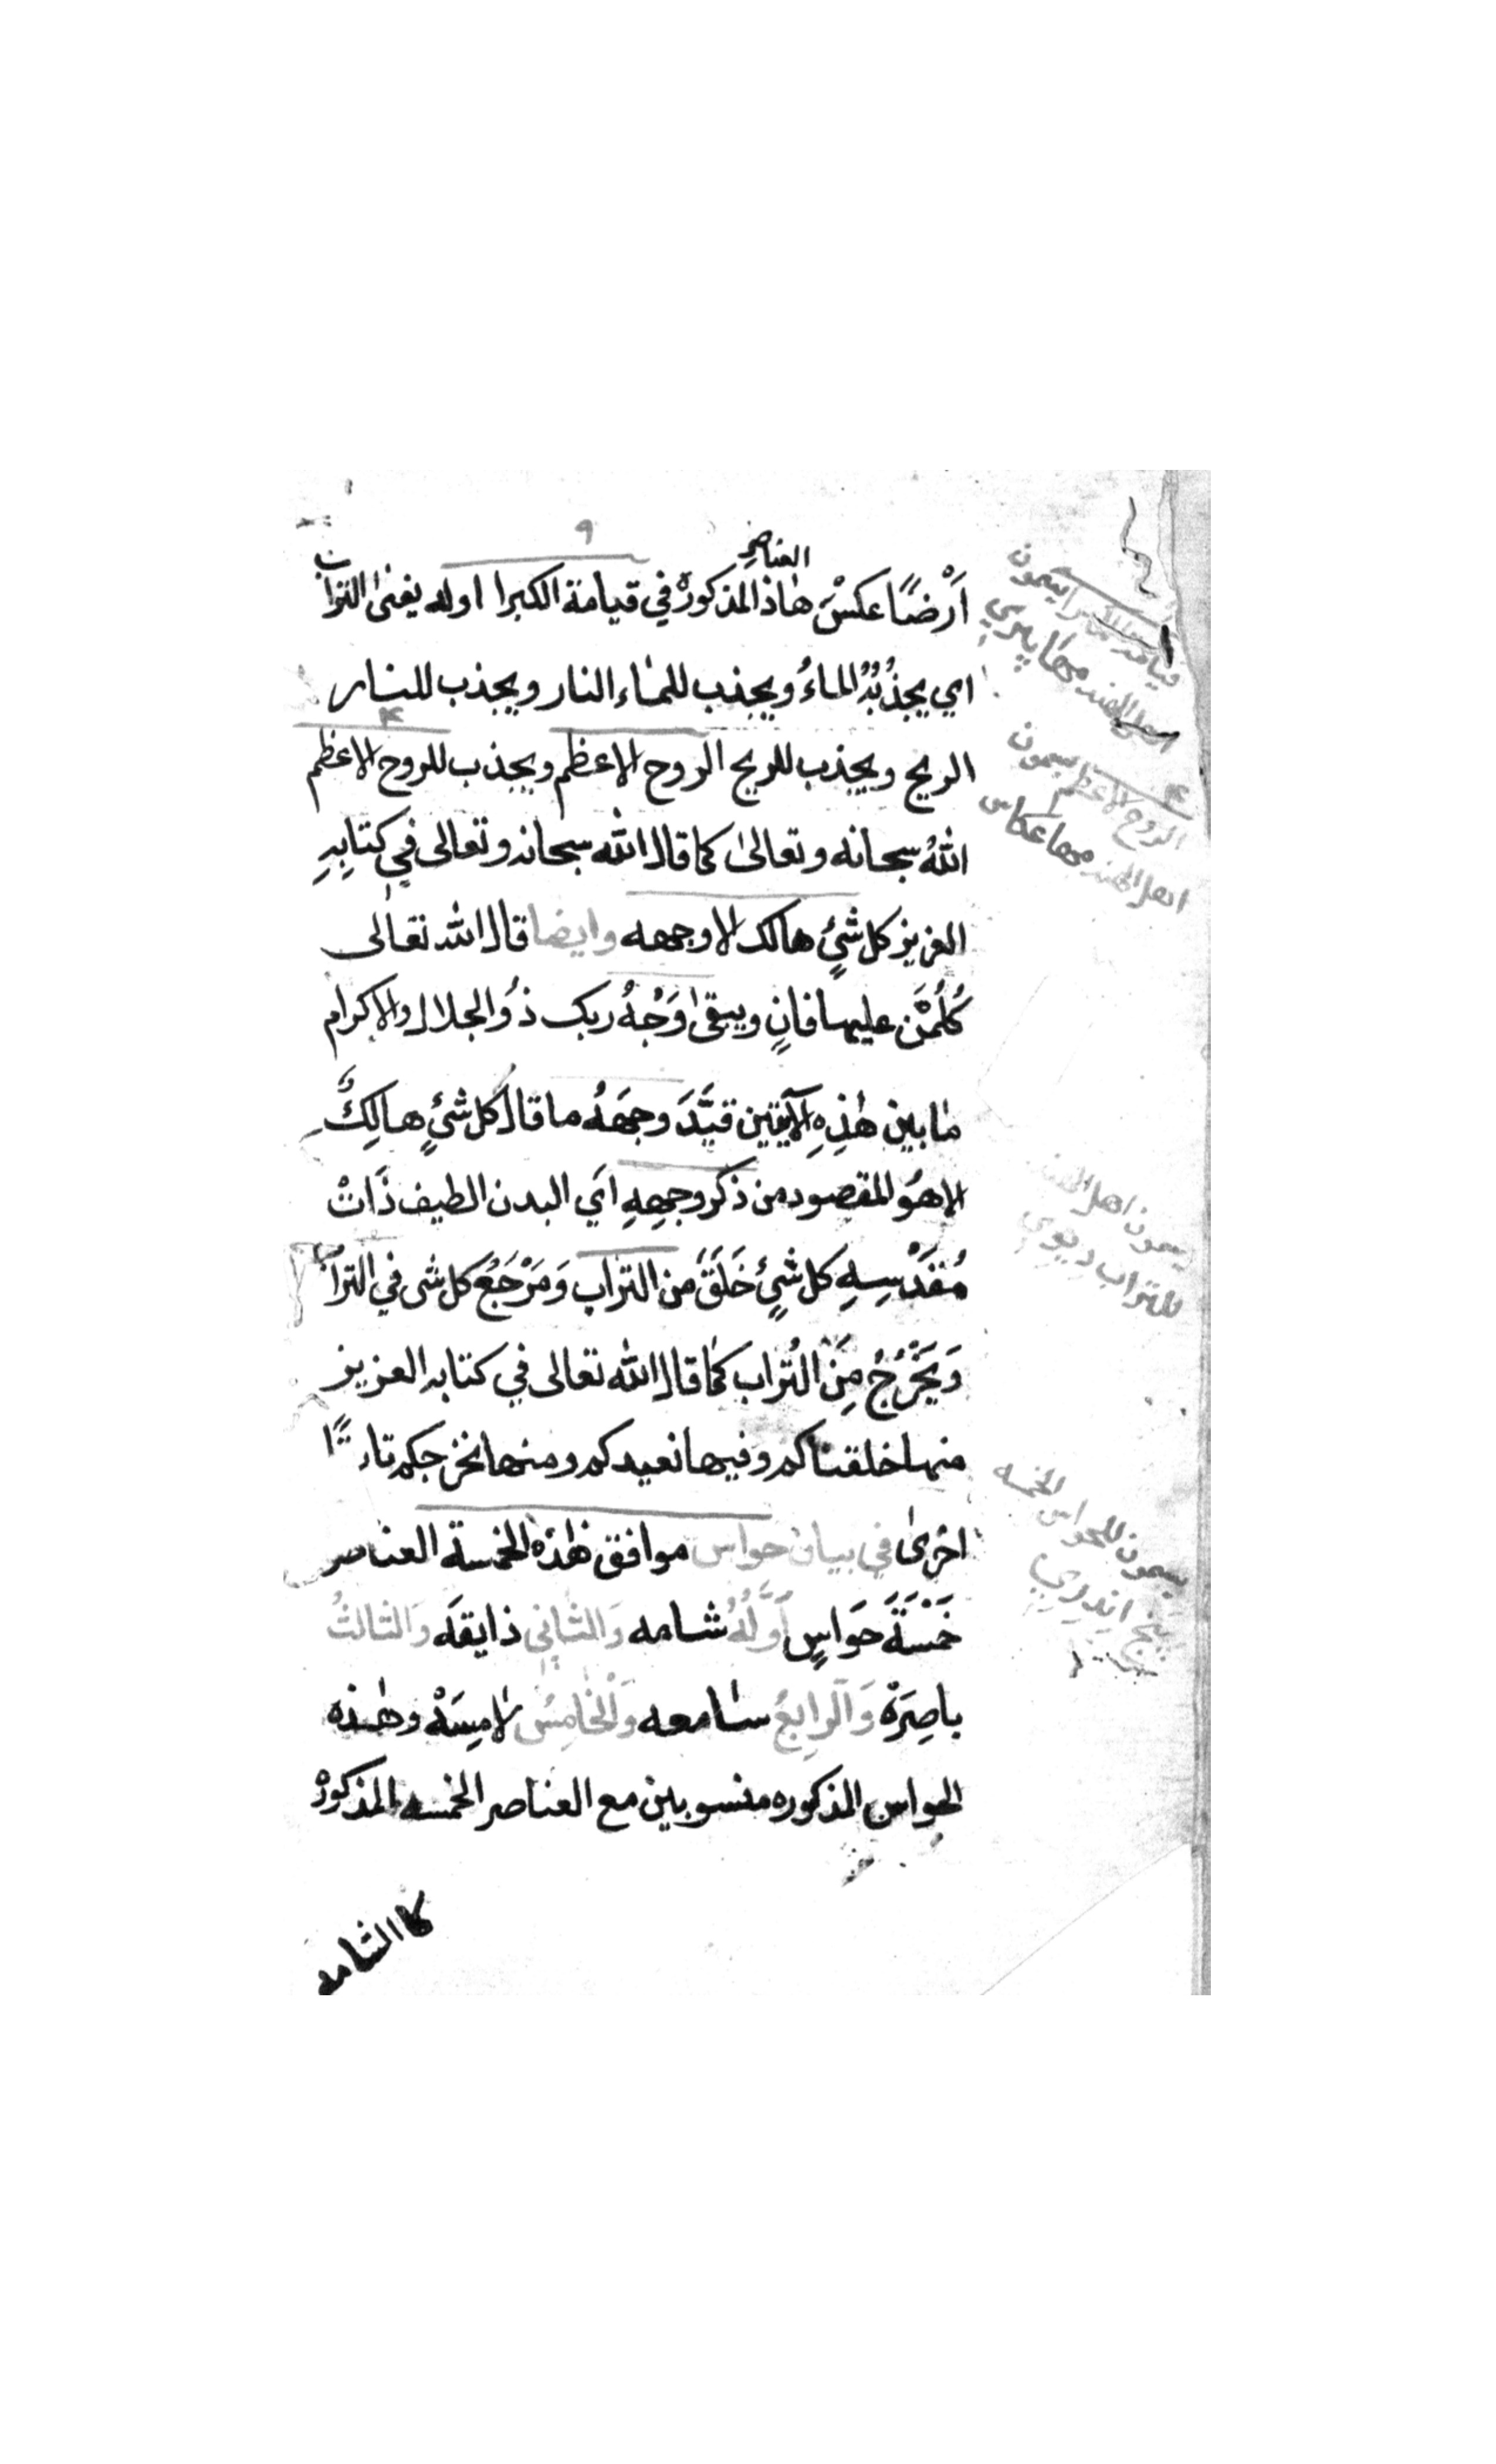 ٩
العناصر
اَرْضًا عكسْ هاذا المذكورة في قيامة الكبرا اوله يفنىٰ التراب
اي يجذبُهُ الماءُ ويجذب للماء النار ويجذب للنار
الريح ويجذب للريح الروح الاعظم ويجذب للروح الاعظم
اللهُ سبحانه وتعالىٰ كما قال الله سبحانه وتعالى في كتابِهِ
العزيز كل شئٍ هالك الا وجهه وايضا قال الله تعالى
كُلُمَّن عليها فانٍ ويبقىٰ وَجْهُ ربك ذُو الجلال والاكرام
ما بين هٰذِهِ الآيتين قيَّدَ وجهَهُ ما قال كل شئٍ هالِكٌ
الا هُو المقصود من ذكر وجهِهِ اَي البدن الطيف ذَاتْ
مُقَدْسِهِ كل شئٍ خَلَقَ من التراب وَمَرْجَعُ كل شى في التراب
وَيَخْرُجُ مِنَ الُتراب كما قال الله تعالى في كتابه العزيز
منها خلقناكم وفيها نعيدكم ومنها نخرجكم تارتًا
اخرىٰ في بيان حواس موافق هٰذه الخمسة العناصر
خَمْسَةَ حَواسٍ اَوَّلُهُ شامه وَالثاني ذايقَه وَالثالثُ
باصِرَهْ وَالرابعُ سامعه وَالْخامِسُ لامِسَهْ وهٰذه
الحواس المذكوره منسوبين مع العناصر الخمسه المذكورهْ
كا الشامه
قيامة الكبرا يسمون
اهل الهند مها پرلي
٤
الروح الاعظم يسمون
اهل الهند مها عكاس
يسمون اهل الهند
للتراب ديوي
يسمون للحواس الخمسه
پنج اندري